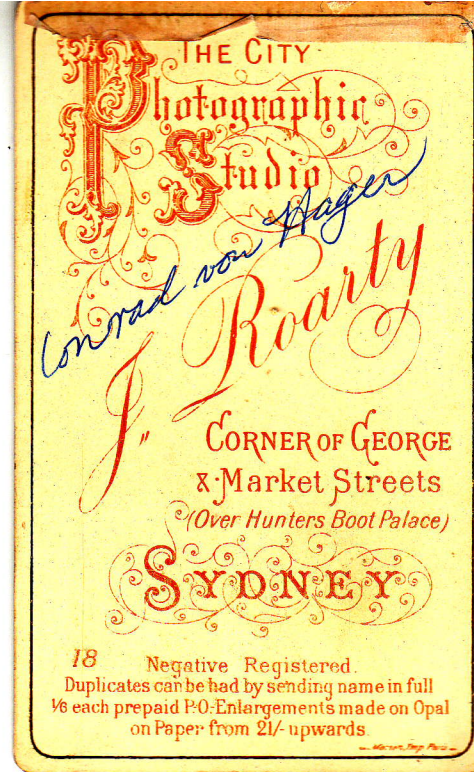 THE CITY
Photographic
Studio
Conrad von Hagen
J. Roarty
CORNER OF GEORGE
& Market Streets
(Over Hunters Boot Palace)
SYDNEY
18
Negative Registered.
Duplicates can be had by sending name in full
1/6 each prepaid P.O. Enlargements made on Opal
on Paper from 21/- upwards.